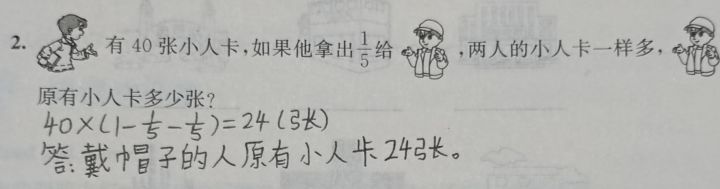 2. 有40张小人卡,如果他拿出1/5给,两人的小人卡一样多,
原有小人卡多少张?
40×(1-1/5-1/5)=24(张)
答:戴帽子的人原有小人卡24张。